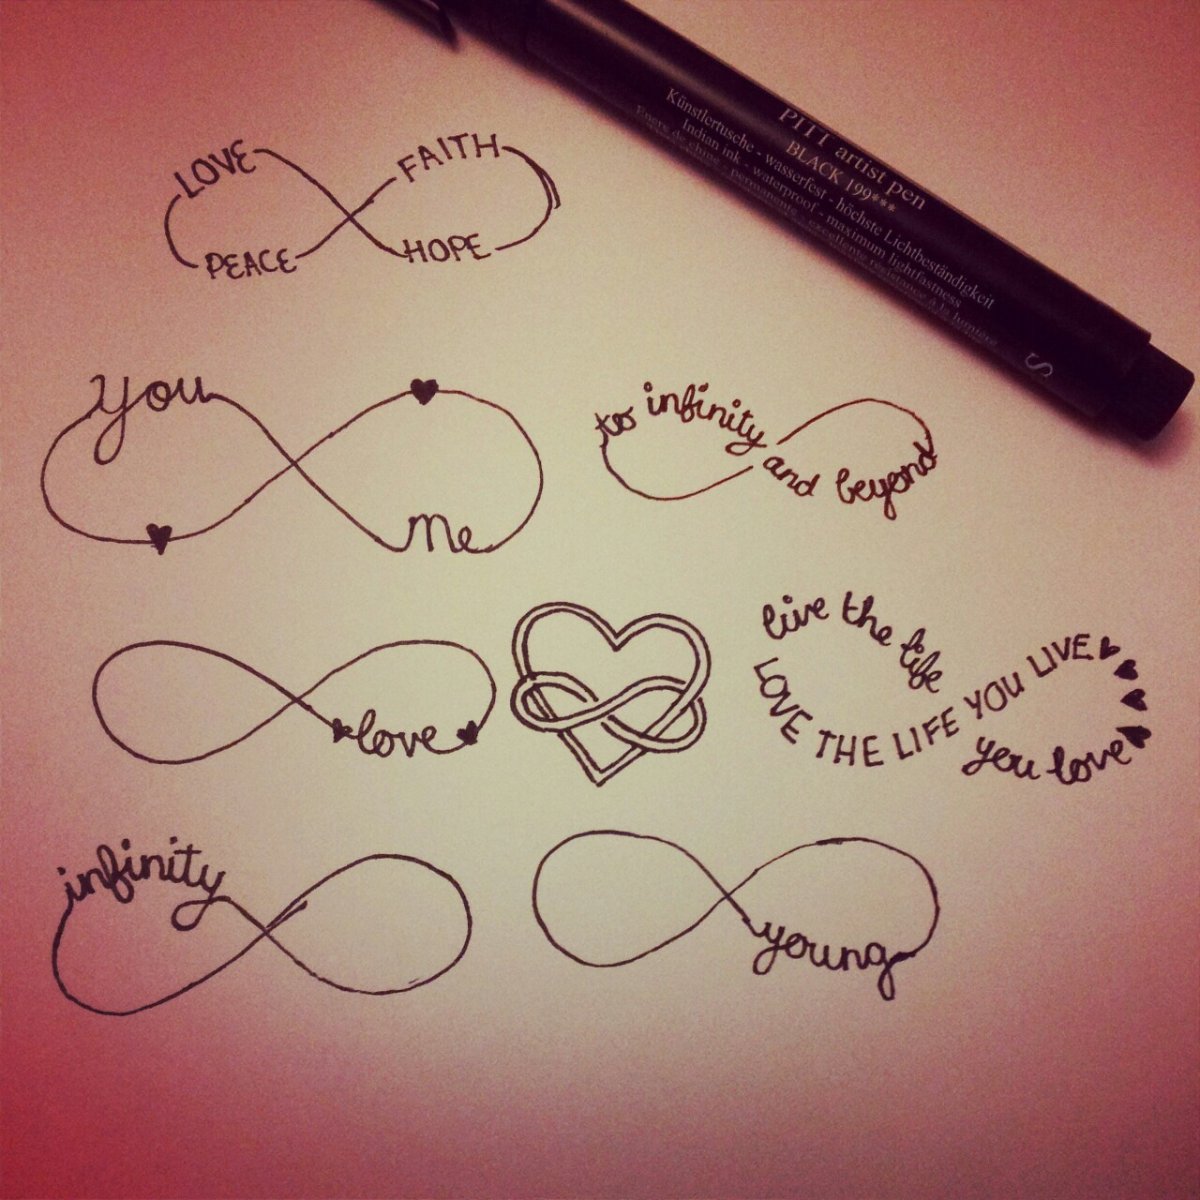 PITT artist pen
BLACK 199***
Künstlertusche - wasserfest - höchste Lichtbeständigkeit
Indian ink - waterproof - maximum lightfastness
Encre de chine - permanente - excellente résistance à la lumière
S
LOVE FAITH
PEACE HOPE
You
Me
to infinity
and beyond
love
live the life
LOVE THE LIFE YOU LIVE
you love
infinity
young